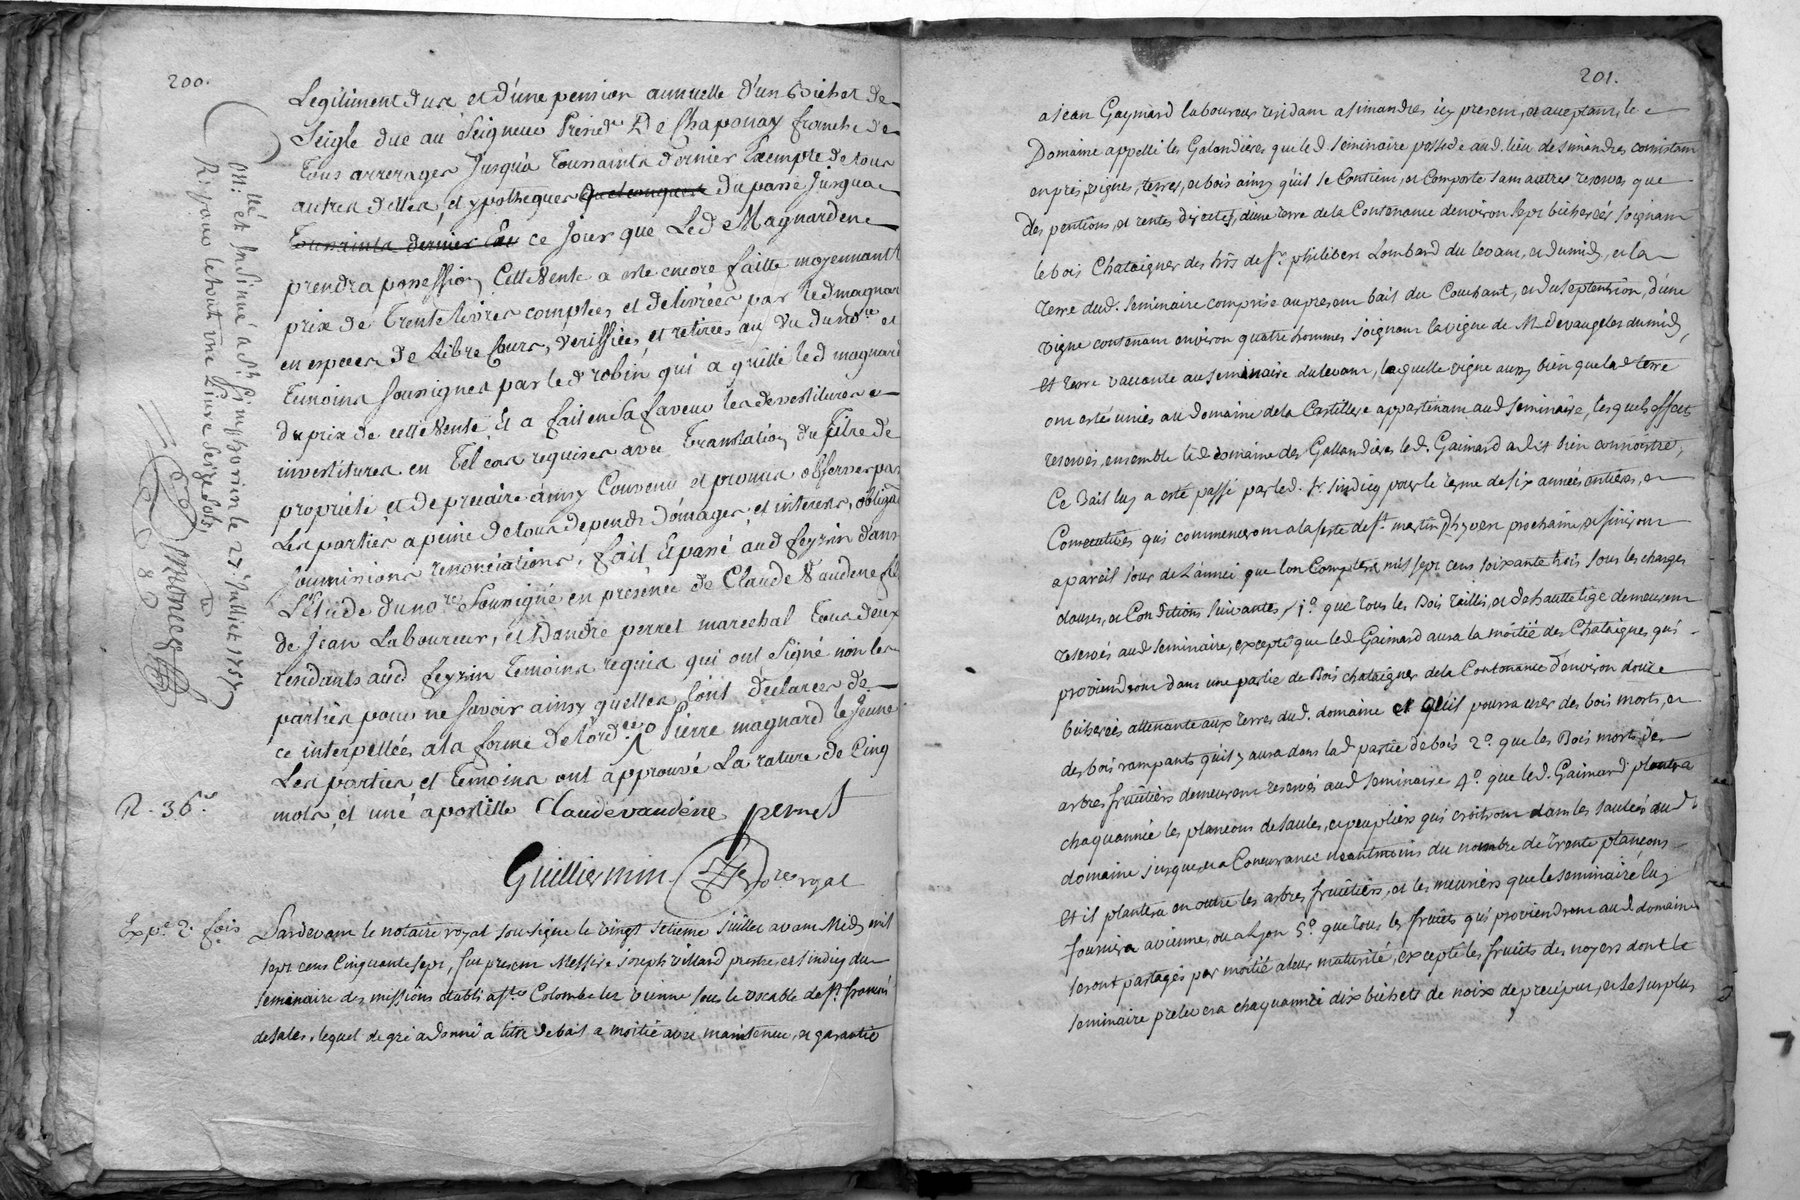 200.
Legitiment dus et d'une pension annuelle d'un Bichet de
Seigle due au Seigneur Presid.t De Chaponay franche de
tous arrerages Jusqu'a Toussaints dernier Exempte de tous
autres dettes, et ypotheques quelconques du passé Jusqua
Toussaints dernier ce Jour que Led Magnard en
prendra possession, Cette Vente a esté encore faitte moyennant
prix de Trente livres comptées et delivrées par led magnard
en especes de Libre Cours, veriffiées, et retirées au Vu du no.re et
Temoins soussignes par led robin qui a quitté led magnard
du prix de cette Vente Et a fait en sa faveur les devestitures
investitures en Tel cas requises avec Translation du Titre de
propriété et de precaire ainsy Convenu et promis observer par
Les parties a peine de tous depends Domages, et interets, obligat
soumissions renonciations, fait Et passé aud feyzin dans
L'Etude du no.re soussigné en présence de Claude Vaudene fils
de Jean Laboureur, et D'andré perret marechal Tous deux
residants aud feyzin Temoins requis qui ont Signé non les
parties pour ne sçavoir ainsy quelles l'ont declarées de
ce interpellées a la forme de l'ord.ce Pierre magnard le Jeune
Les parties et Temoins ont approuvé La rature de Cinq
mots et une apostille Claude vaudene perret
Guilliermin no.re royal
m.llé et Insinué a St. Simphorien le 27e Juillet 1757
R. pour le tout une Livre Seize sols,
R. 36.s
Exp.é 2. fois
Pardevant le notaire royal soussigné le vingt setieme juillet avant Midy mil
sept cens Cinquante sept, fut present Messire joseph villard prestre et sindicq du
seminaire des missions etabli a ste Colombe lez vienne sous le vocable de st. francois
de sales, lequel de gré a donné a titre de bail a moitié avec maintenue, et garantie
201.
a jean Gaymard laboureur residant a simandres icy present, et acceptant, le
Domaine appellé les Galandieres que led seminaire possede aud. lieu de simandres consistant
en prés, vignes, terres, et bois ainsy qu'il se Contient, et Comporte sans autres reserves que
des pentions, et rentes directes, d'une terre de la Contenance d'environ sept bicherées joignant
le bois Chataigner des hrs de sr. philibert Lombard du levant, et du midy, et la
terre dud. seminaire comprise au present bail du Couchant, et du septention, d'une
vigne contenant environ quatre hommes joignant la vigne de Mr devaugeles du midy,
et terre vaccante au seminaire du levant, laquelle vigne aussy bien que lad terre
ont esté unies au domaine de la Castillere appartenant aud seminaire, lesquels effets
reservés, ensemble led domaine des Gallandieres led. Gaimard a dit bien connoistre,
Ce Bail luy a esté passé par led. sr. sindicq pour le terme de six années entieres, et
Consecutives qui commenceront a la feste de st. martin d'hyver prochaine, et finiront
a pareil jour de L'année que l'on Comptera mil sept cens soixante trois sous les charges
clauses, et Conditions suivantes, 1.o que tous les Bois taillis, et de hautte tige demeurent
reservés aud seminaire, excepté que led Gaimard aura la moitié des Chataignes qui
proviendront dans une partie de Bois chataigner de la Contenance d'environ douze
bicherées attenante aux terres dud. domaine et qu'il pourra user des bois morts, et
des bois rampants qu'il y aura dans lad partie de bois 2.o que les Bois morts des
arbres fruitiers demeurent reservés aud seminaire 4.o que led. Gaimard plantera
chaqu'année les plancons de saules, et peupliers qui croitront dans les saulées dud
domaine jusques a Concurrance neantmoins du nombre de trente plançons
et il plantera en outre les arbres fruitiers, et les meuriers que le seminaire luy
fournira a vienne, ou a Lyon 5.o que tous les fruits qui proviendront aud domaine
seront partagés par moitié a leur maturité, excepté les fruits des noyers dont le
seminaire prelevera chaquannée dix bichets de noix de precipu, et le surplus